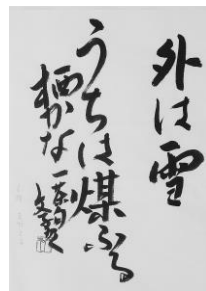 外は雪
うちは煤ふる
栖かな